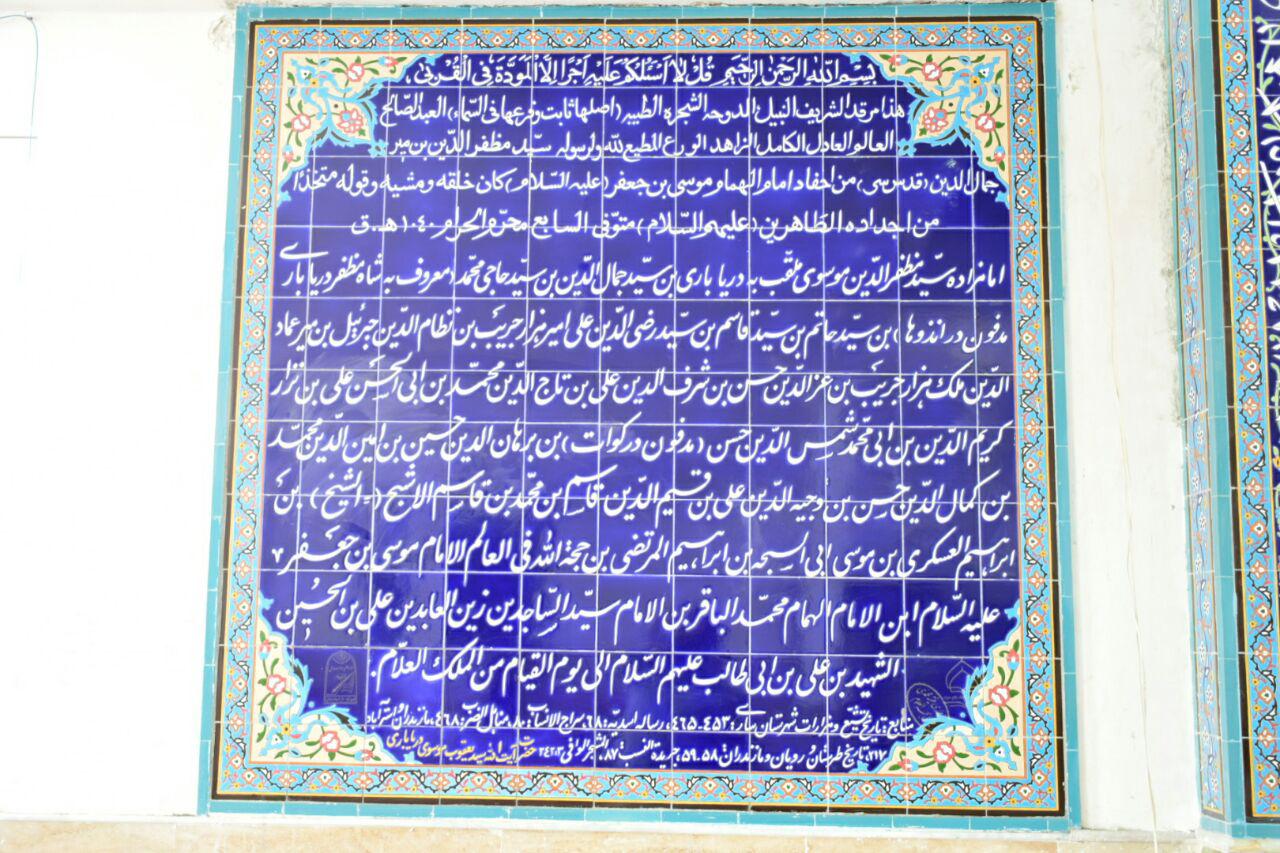 بسم الله الرحمن الرحیم قل لا اسئلکم علیه اجرا الا المودة فی القربی
هذا مرقد الشریف النبیل الدوحه الشجره الطیبه (اصلها ثابت وفرعها فی السماء) العبد الصالح
العالم و العادل الکامل الزاهد الورع المطیع لله ولرسوله سید مظفر الدین بن میر
جمال الدین (قدس سره) من احفاد امام الهمام موسی بن جعفر (علیه السلام) کان خلقه ومشیه وقوله متخذا
من اجداده الطاهرین (علیهم السلام) متوفی السابع محرم الحرام ۱۰۴۰ هـ.ق
امامزاده سید مظفر الدین موسوی ملقب به دریا باری بن سید جمال الدین بن سید حاجی محمد (معروف به شاه مظفر دریا باری
مدفون در اندوها) بن سید حاتم بن سید قاسم بن سید رضی الدین علی امیر هزار جریب بن نظام الدین جبرئیل بن میر عماد
الدین ملک هزار جریب بن عز الدین حسن بن شرف الدین علی بن تاج الدین محمد بن ابی الحسن علی بن نزار
کریم الدین بن ابی محمد شمس الدین حسن (مدفون در کوات) بن برهان الدین حسین بن امین الدین محمد
بن کمال الدین حسن بن وجیه الدین علی بن قسیم الدین قاسم بن محمد بن قاسم الاشبح (=الشیخ) بن
ابراهیم العسکری بن موسی ابی السبحه بن ابراهیم المرتضی بن حجة الله فی العالم الامام موسی بن جعفر
علیه السلام ابن الامام الهمام محمد الباقر بن الامام سید الساجدین زین العابدین علی بن الحسین
الشهید بن علی بن ابی طالب علیهم السلام الی یوم القیام من الملک العلام.
منابع: تاریخ تشیع و مزارات شهرستان ساری: ۴۵۳-۴۶۵، رساله اسدیه: ۶۸، سراج الانساب: ۸۰، مناهل الضرب: ۴۶۸، مازندران و استرآباد
۲۱۲، تاریخ طبرستان رویان و مازندران: ۵۸-۵۹، جریده النسب: ۸۷، الشجر الوافی ۲۴۲:۳ حضرت آیت الله سید یعقوب موسوی دریاباری